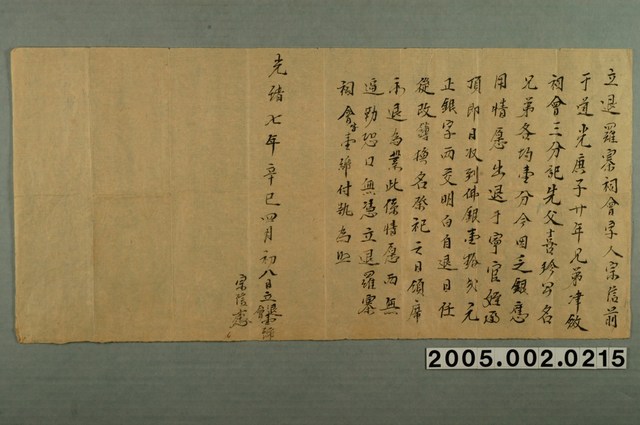 立退羅寨祠會字人宗信前
于道光庚子廿年兄弟津斂
祠會三分記先父喜珍公名
兄弟各均壹分今因乏銀應
用情愿出退于寧官姪承
頂即日收到佛銀壹拾贰元
正銀字両交明白自退日任
從改簿換名祭祀之日領席
永退為業此係情愿両無
逼勒恐口無憑立退羅寨
祠會字壹紙付執為照
光緒七年辛巳四月初八日立退
宗信
2005.002.0215